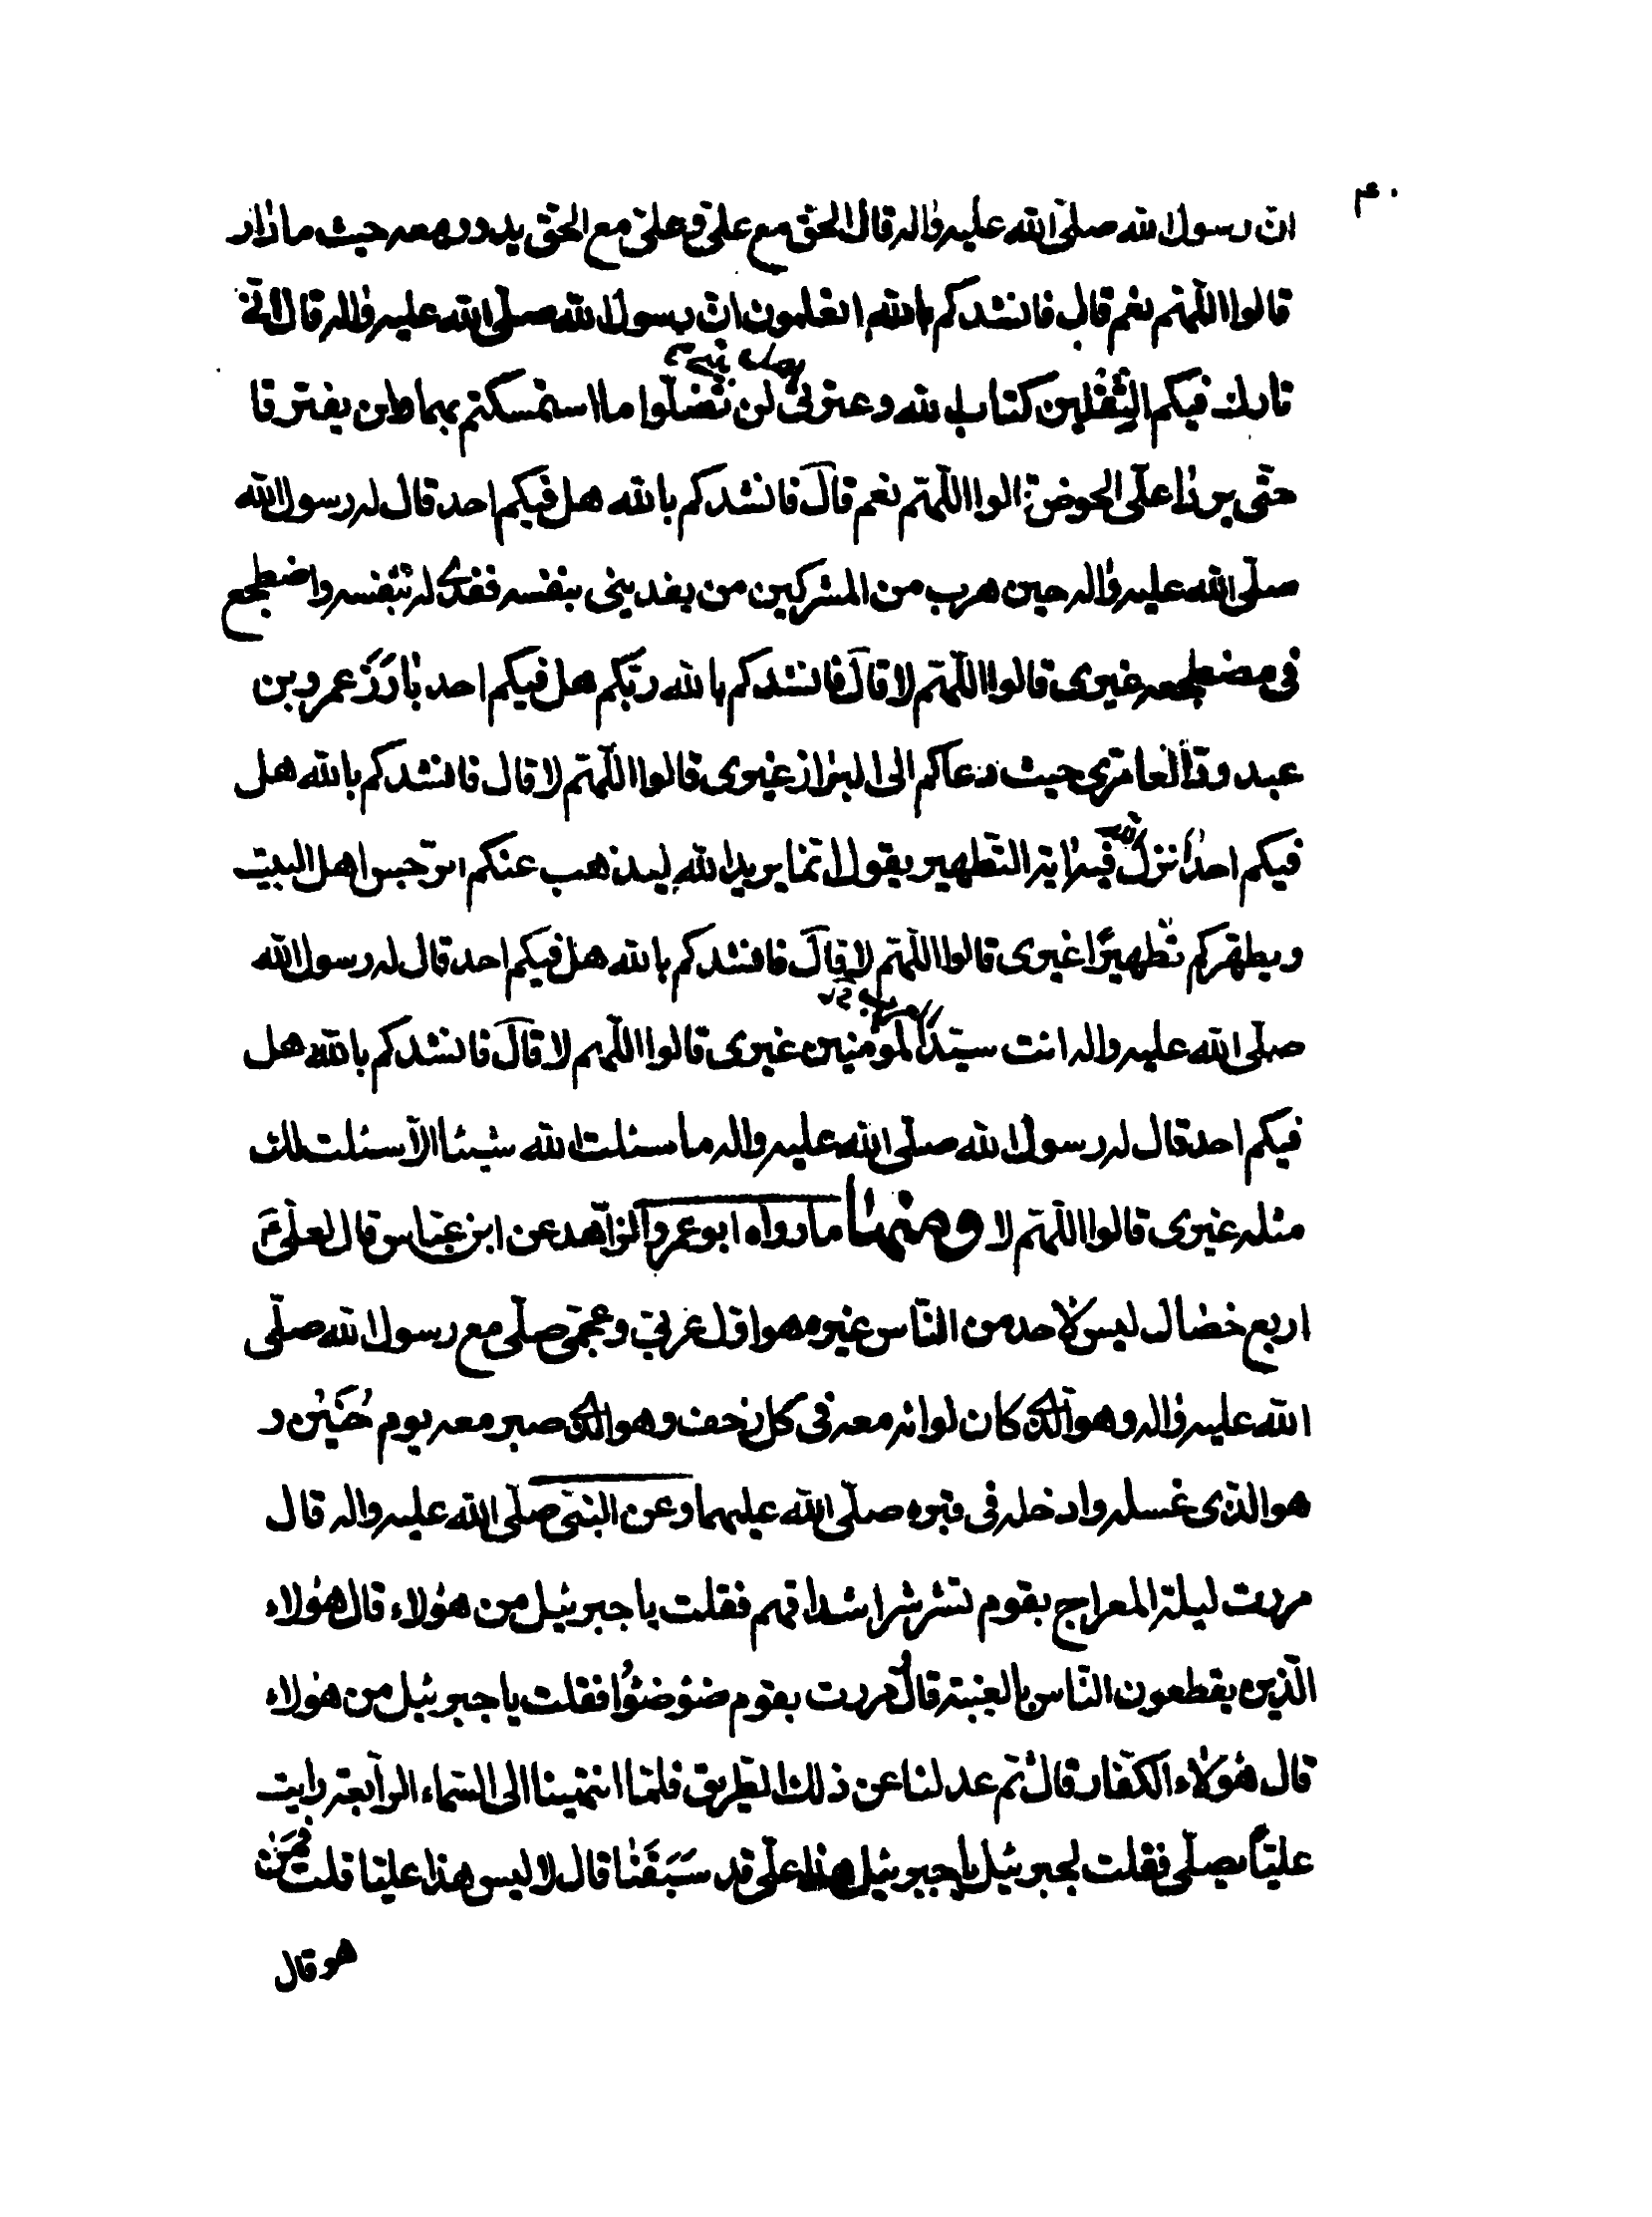 ۴۰
ان رسول الله صلّى الله عليه واله قال الحق مع علىّ وعلىّ مع الحق يدور معه حيث ما دار
قالوا اللّهم نعم قال فانشدكم بالله اتعلمون ان رسول الله صلّى الله عليه واله قال انّى
تارك فيكم الثقلين كتاب الله وعترتى لن تضلّوا ما استمسكتم بهما ولن يفترقا
حتّى يردا علىّ الحوض قالوا اللّهم نعم قال فانشدكم بالله هل فيكم احد قال له رسول الله
صلّى الله عليه واله حين هرب من المشركين من يفدينى بنفسه ففدى له بنفسه واضطجع
فى مضطجعه غيرى قالوا اللّهم لا قال فانشدكم بالله ربّكم هل فيكم احد بارَزَ عمرو بن
عبد ودّ العامرى حيث دعاكم الى البراز غيرى قالوا اللّهم لا قال فانشدكم بالله هل
فيكم احد انزل الله فيه اية التّطهير يقول انّما يريد الله ليذهب عنكم الرّجس اهل البيت
ويطهّركم تطهيرًا غيرى قالوا اللّهم لا قال فانشدكم بالله هل فيكم احد قال له رسول الله
صلّى الله عليه واله انت سيّد المؤمنين غيرى قالوا اللّهم لا قال فانشدكم بالله هل
فيكم احد قال له رسول الله صلّى الله عليه واله ما سئلت الله شيئا الّا سئلت لك
مثله غيرى قالوا اللّهم لا ومنها ما رواه ابو عمرو الزاهد عن ابن عبّاس قال لعلىّ ع
اربع خصال ليس لاحد من النّاس غيره هو اوّل عربىّ وعجمىّ صلّى مع رسول الله صلّى
الله عليه واله وهو الّذى كان لوائه معه فى كل زحف وهو الذى صبر معه يوم حُنَيْن و
هو الّذى غسله وادخله فى قبره صلّى الله عليهما وعن النبىّ صلّى الله عليه واله قال
مررت ليلة المعراج بقوم تشرشر اشداقهم فقلت يا جبرئيل من هؤلاء قال هؤلاء
الّذين يقطعون النّاس بالغيبة قال ومررت بقوم ضؤضئوا فقلت يا جبرئيل من هؤلاء
قال هؤلاء الكفّار قال ثم عدلنا عن ذلك الطريق فلمّا انتهينا الى السّماء الرّابعة رايت
عليّاً يصلّى فقلت لجبرئيل يا جبرئيل هذا علىّ قد سَبَقَنا قال لا ليس هذا عليّا قلت فمَن
هو قال